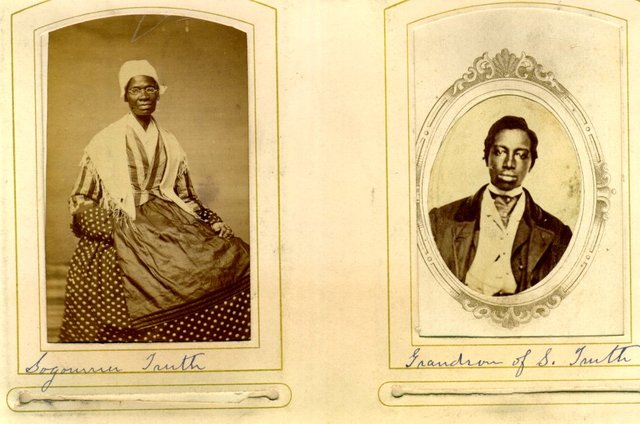 Sogourner Truth
Grandson of S. Truth